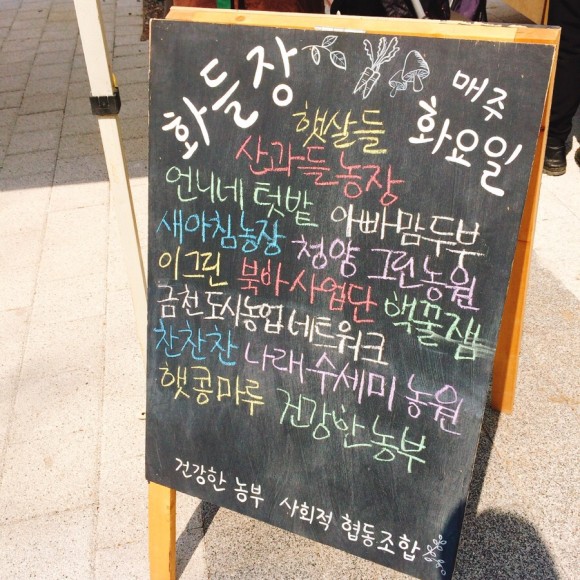 화들장
매주 화요일
햇살들
산과들농장
언니네텃밭 아빠맘두부
새아침농장 청양 그린농원
이그린 북바사업단 백꿀잼
금천도시농업네트워크
찬찬찬 나래수세미농원
햇콩마루 건강한농부
건강한 농부 사회적 협동조합